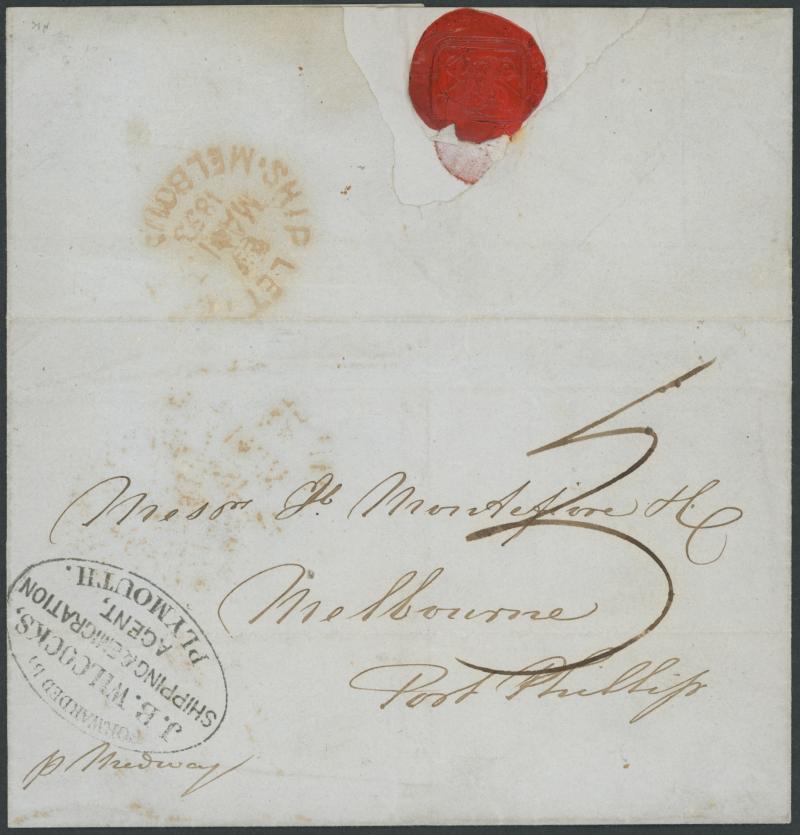 SHIP LET
HS·MELBOU
MA
1853
3
Messrs Jb Montefiore &
Melbourne
Port Phillip
FORWARDED BY,
J. B. WILCOCKS,
SHIPPING & EMIGRATION
AGENT,
PLYMOUTH.
p Medway